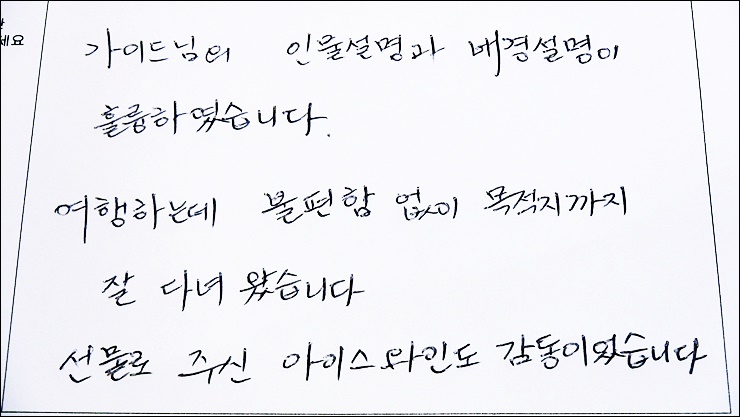 세요
가이드님의 인물설명과 배경설명이
훌륭하였습니다.
여행하는데 불편함 없이 목적지까지
잘 다녀 왔습니다
선물로 주신 아이스와인도 감동이었습니다